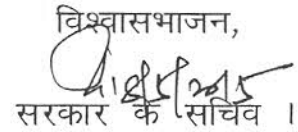 विश्वासभाजन,
सरकार के सचिव ।